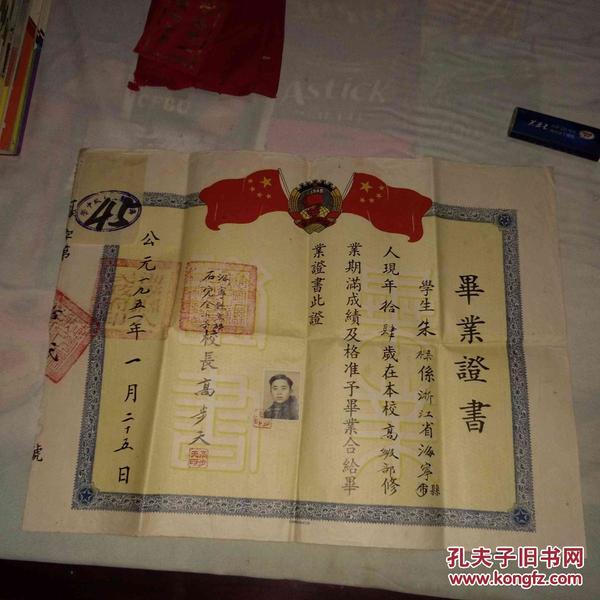 畢業證書
學生朱 係浙江省海寧縣
人現年拾肆歲在本校高級部修
業期滿成績及格准予畢業合給畢
業證書此證
校長高步天
公元一九五一年一月二十五日
字第
號
45
1949
Astick
孔夫子旧书网
www.kongfz.com